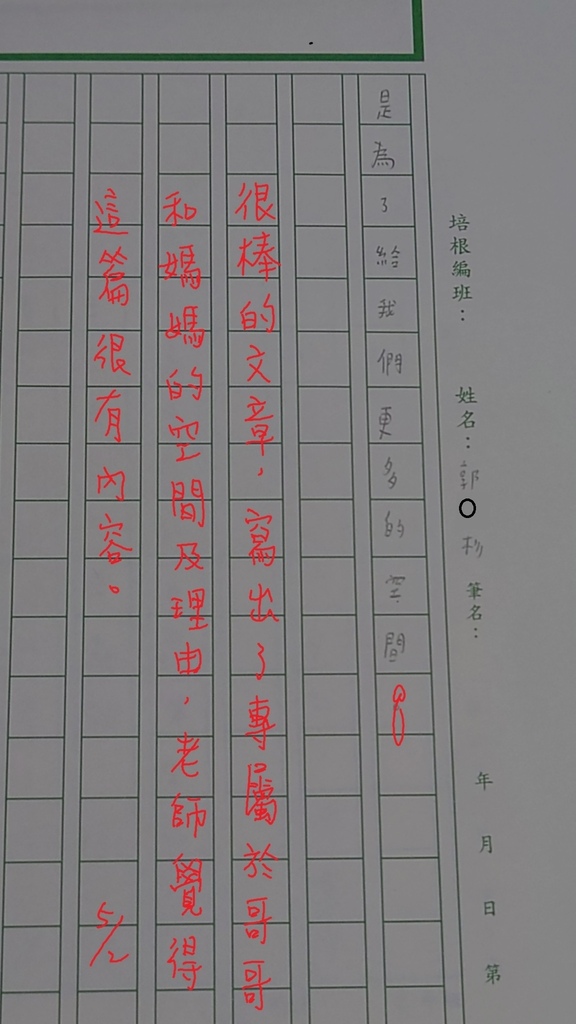 培根編班：
姓名：郭〇杉 筆名：
年 月 日 第
是為了給我們更多的空間
很棒的文章，寫出了專屬於哥哥
和媽媽的空間及理由，老師覺得
這篇很有內容。
5/2